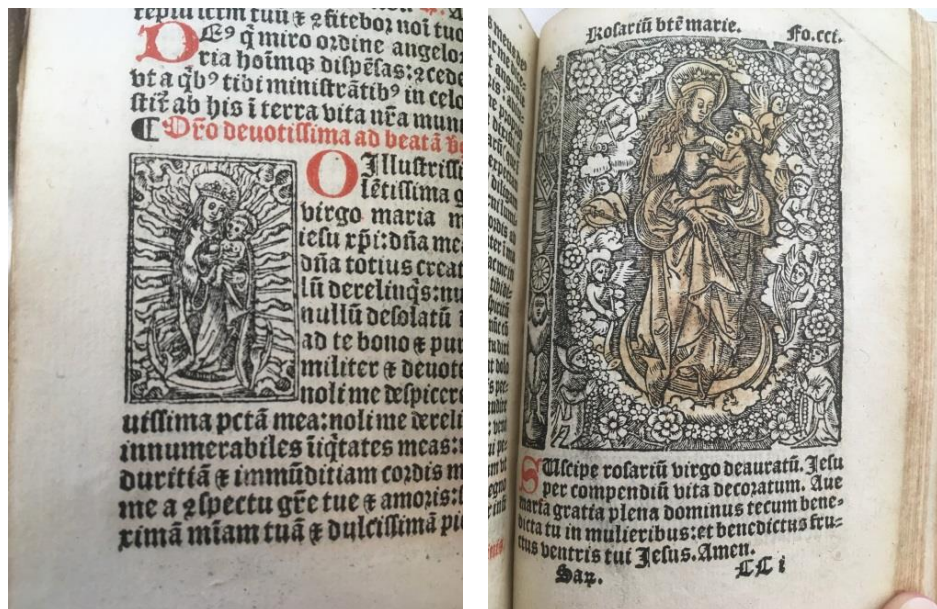 tepłu ictm tuū ⁊ ꝯfitebor noī tuo
DEꝰ q̄ miro ordine angelor
ria hoīmqꝫ dispēsas: ⁊ cede
vt a qͥbꝰ tibi ministrātibꝰ in celo
stīt ab his ī terra vita nr̄a mun
¶ Oro deuotissima ad beatā
O Illustrissi
lētissima g
virgo maria m
iesu xp̄i: dn̄a me
dn̄a totius creat
lū derelinq̄s: nu
nullū desolatū
ad te bono ⁊ pur
militer ⁊ deuote
noli me despicere
utissima pctā mea: noli me dereli
innumerabiles īiq̄tates meas:
duritiā ⁊ immūditiam cordis m
me a ꝯspectu gr̄e tue ⁊ amoris:
ximā mīam tuā ⁊ dulcissimā pi
Rosariū btē marie. Fo.cci.
SUscipe rosariū virgo deauratū. Jesu
per compendiū vita decoratum. Aue
maria gratia plena dominus tecum bene-
dicta tu in mulieribus: et benedictus fru-
ctus ventris tui Jesus. Amen.
Sar. CC i